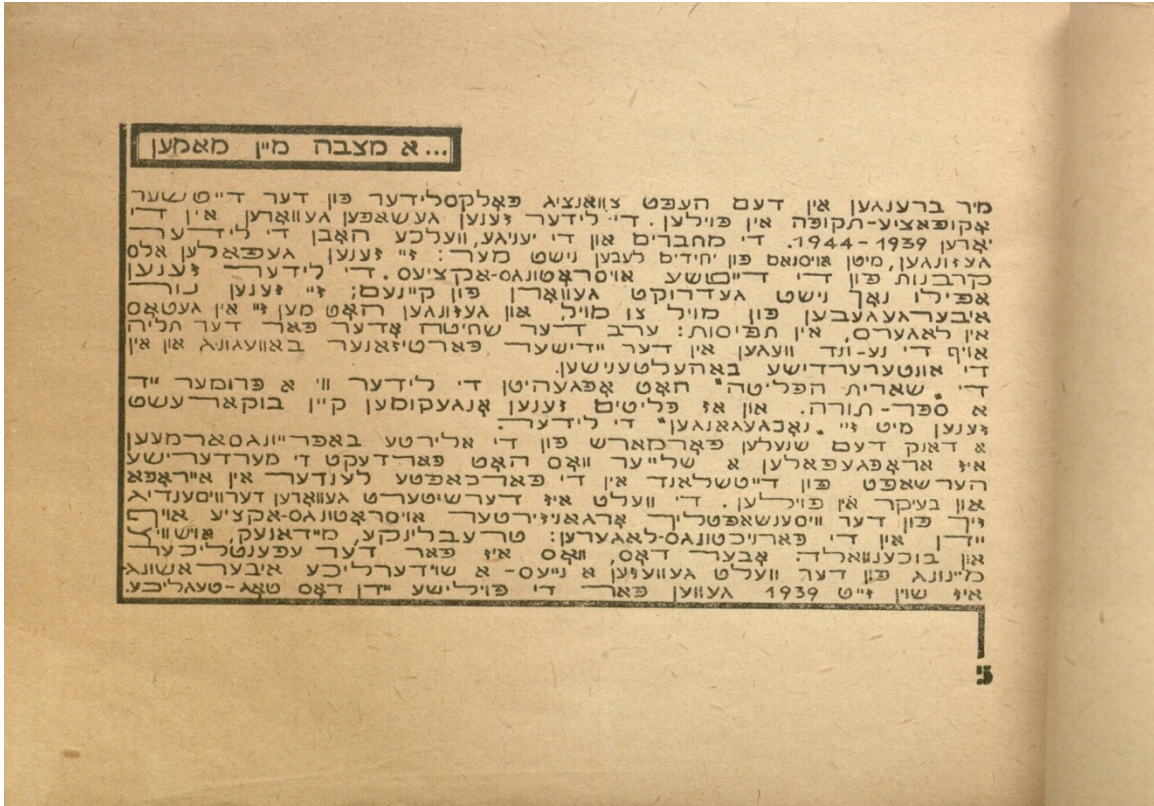 ...א מצבה מיין מאמען
מיר ברענגען אין דעם העפט צוואנציג פאלקסלידער פון דער דייטשער
אָקופּאַציע-תקופה אין פוילן. די לידער זענען געשאפען געווארען, אין די
יארען 1939-1944. די מחברים און די יעניגע, וועלכע האבן די לידער
געזונגען, מיטן אויסנאם פון יחידים לעבען נישט מער: זיי זענען געפאלען אלס
קרבנות פון די דייטשע אויסראטונגס-אקציעס. די לידער זענען
אפילו נאך נישט געדרוקט געווארן פון קיינעם; זיי זענען נור
איבערגעגעבען פון מויל צו מויל, און געזונגען האט מען זיי אין געטאס
אין לאגערס, אין תפיסות: ערב דער שחיטה אדער פאר דער תליה
אויף די נע-ונד וועגען אין דער יידישער פארטיזאנער באוועגונג און אין
די אונטערערדישע באהעלטענישען.
די "שארית הפליטה" האט אפגעהיטן די לידער ווי א פרומער ייד
א ספר-תורה. און אז פליטים זענען אָנגעקומען קיין בוקארעשט
זענען מיט זיי "נאכגעגאנגען" די לידער.
א דאנק דעם שנעלען פארמארש פון די אלירטע באפרייונגסארמעען
איז אראפגעפאלען א שלייער וואס האט פארדעקט די מערדערישע
הערשאפט פון דייטשלאנד אין די פארכאפטע לענדער אין אייראפא
און בעיקר אין פוילען. די וועלט איז דערשיטערט געווארען דערוויסענדיג
זיך פון דער וויסענשאפטליך ארגאניזירטער אויסראטונגס-אקציע אויף
יידן אין די פארניכטונגס-לאגערען: טרעבלינקע, מיידאנעק, אוישוויץ
און בוכענוואלד. אבער דאס, וואס איז פאר דער עפענטליכער
מיינונג פון דער וועלט געוועזען א נייעס- א שוידערליכע איבעראשונג
איז שוין זייט 1939 געווען פאר די פוילישע יידן דאס טאג-טעגליכע.
5